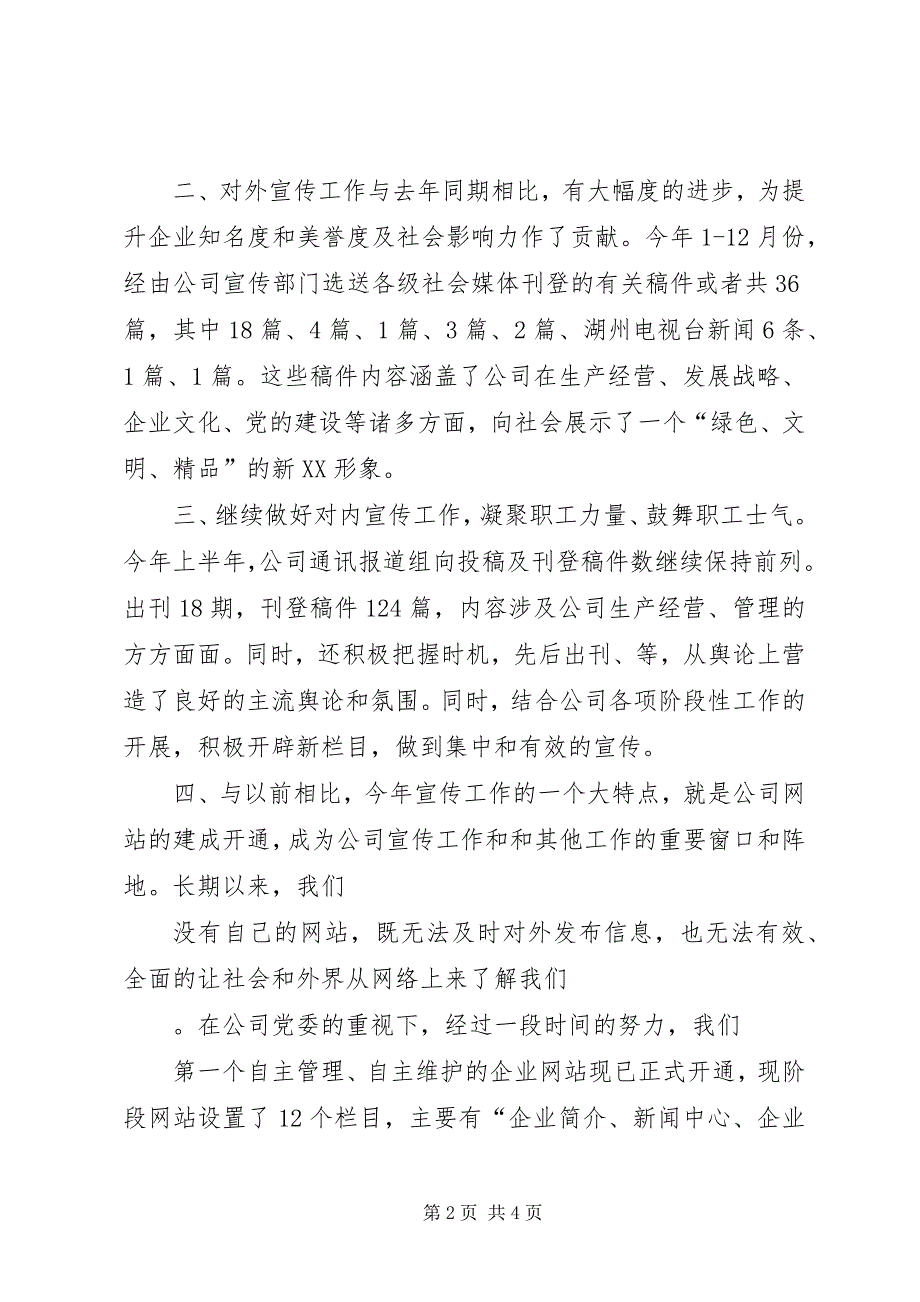 二、对外宣传工作与去年同期相比，有大幅度的进步，为提
升企业知名度和美誉度及社会影响力作了贡献。今年 1-12 月份，
经由公司宣传部门选送各级社会媒体刊登的有关稿件或者共 36
篇，其中 18 篇、4 篇、1 篇、3 篇、2 篇、湖州电视台新闻 6 条、
1 篇、1 篇。这些稿件内容涵盖了公司在生产经营、发展战略、
企业文化、党的建设等诸多方面，向社会展示了一个“绿色、文
明、精品”的新 XX 形象。
三、继续做好对内宣传工作，凝聚职工力量、鼓舞职工士气。
今年上半年，公司通讯报道组向投稿及刊登稿件数继续保持前列。
出刊 18 期，刊登稿件 124 篇，内容涉及公司生产经营、管理的
方方面面。同时，还积极把握时机，先后出刊、等，从舆论上营
造了良好的主流舆论和氛围。同时，结合公司各项阶段性工作的
开展，积极开辟新栏目，做到集中和有效的宣传。
四、与以前相比，今年宣传工作的一个大特点，就是公司网
站的建成开通，成为公司宣传工作和和其他工作的重要窗口和阵
地。长期以来，我们
没有自己的网站，既无法及时对外发布信息，也无法有效、
全面的让社会和外界从网络上来了解我们
。在公司党委的重视下，经过一段时间的努力，我们
第一个自主管理、自主维护的企业网站现已正式开通，现阶
段网站设置了 12 个栏目，主要有“企业简介、新闻中心、企业
第 2 页 共 4 页